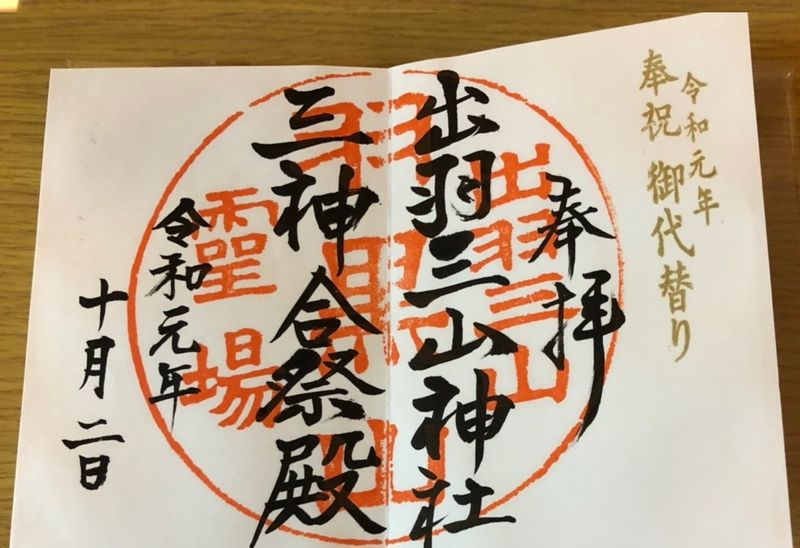 令和元年
奉祝 御代替り
奉拝
出羽三山神社
三神合祭殿
令和元年
十月二日
出羽三山
羽黒山
霊場